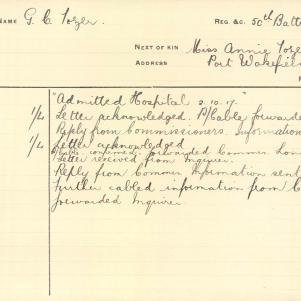 NAME G. C. Tozer. REG. &C. 50th Batt
NEXT OF KIN Miss Annie Toze
ADDRESS Port Wakefield
"Admitted Hospital 2.10.17."
1/4 Letter acknowledged. P/Cable forwarded
Reply from Commissioners. Information
1/4 Letter acknowledged
confirmed. forwarded Commr. Lon
Letter received from Inquirer.
Reply from Commr Information sent
Further cabled information from C
forwarded Inquirer.